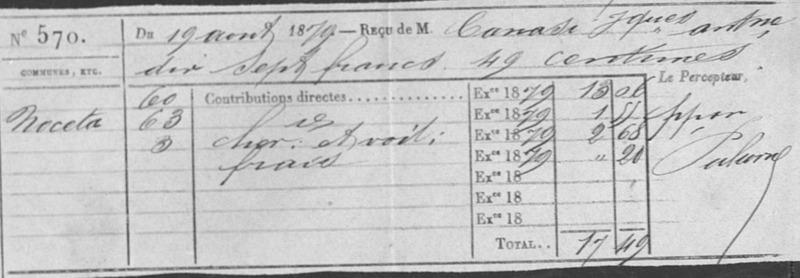 N° 570. Du 19 aout 1879 — Reçu de M. Canasi Jques antne
dix sept francs 49 centimes.
COMMUNES, ETC. Le Percepteur,
60 Contributions directes.............. Exce 1879 13
Noceta 63 Exce 1879 1 55
3 chev. et voit: Exce 1879 2 68
frais Exce 1879 " 20
Exce 18
Exce 18
Exce 18
TOTAL.. 17 49